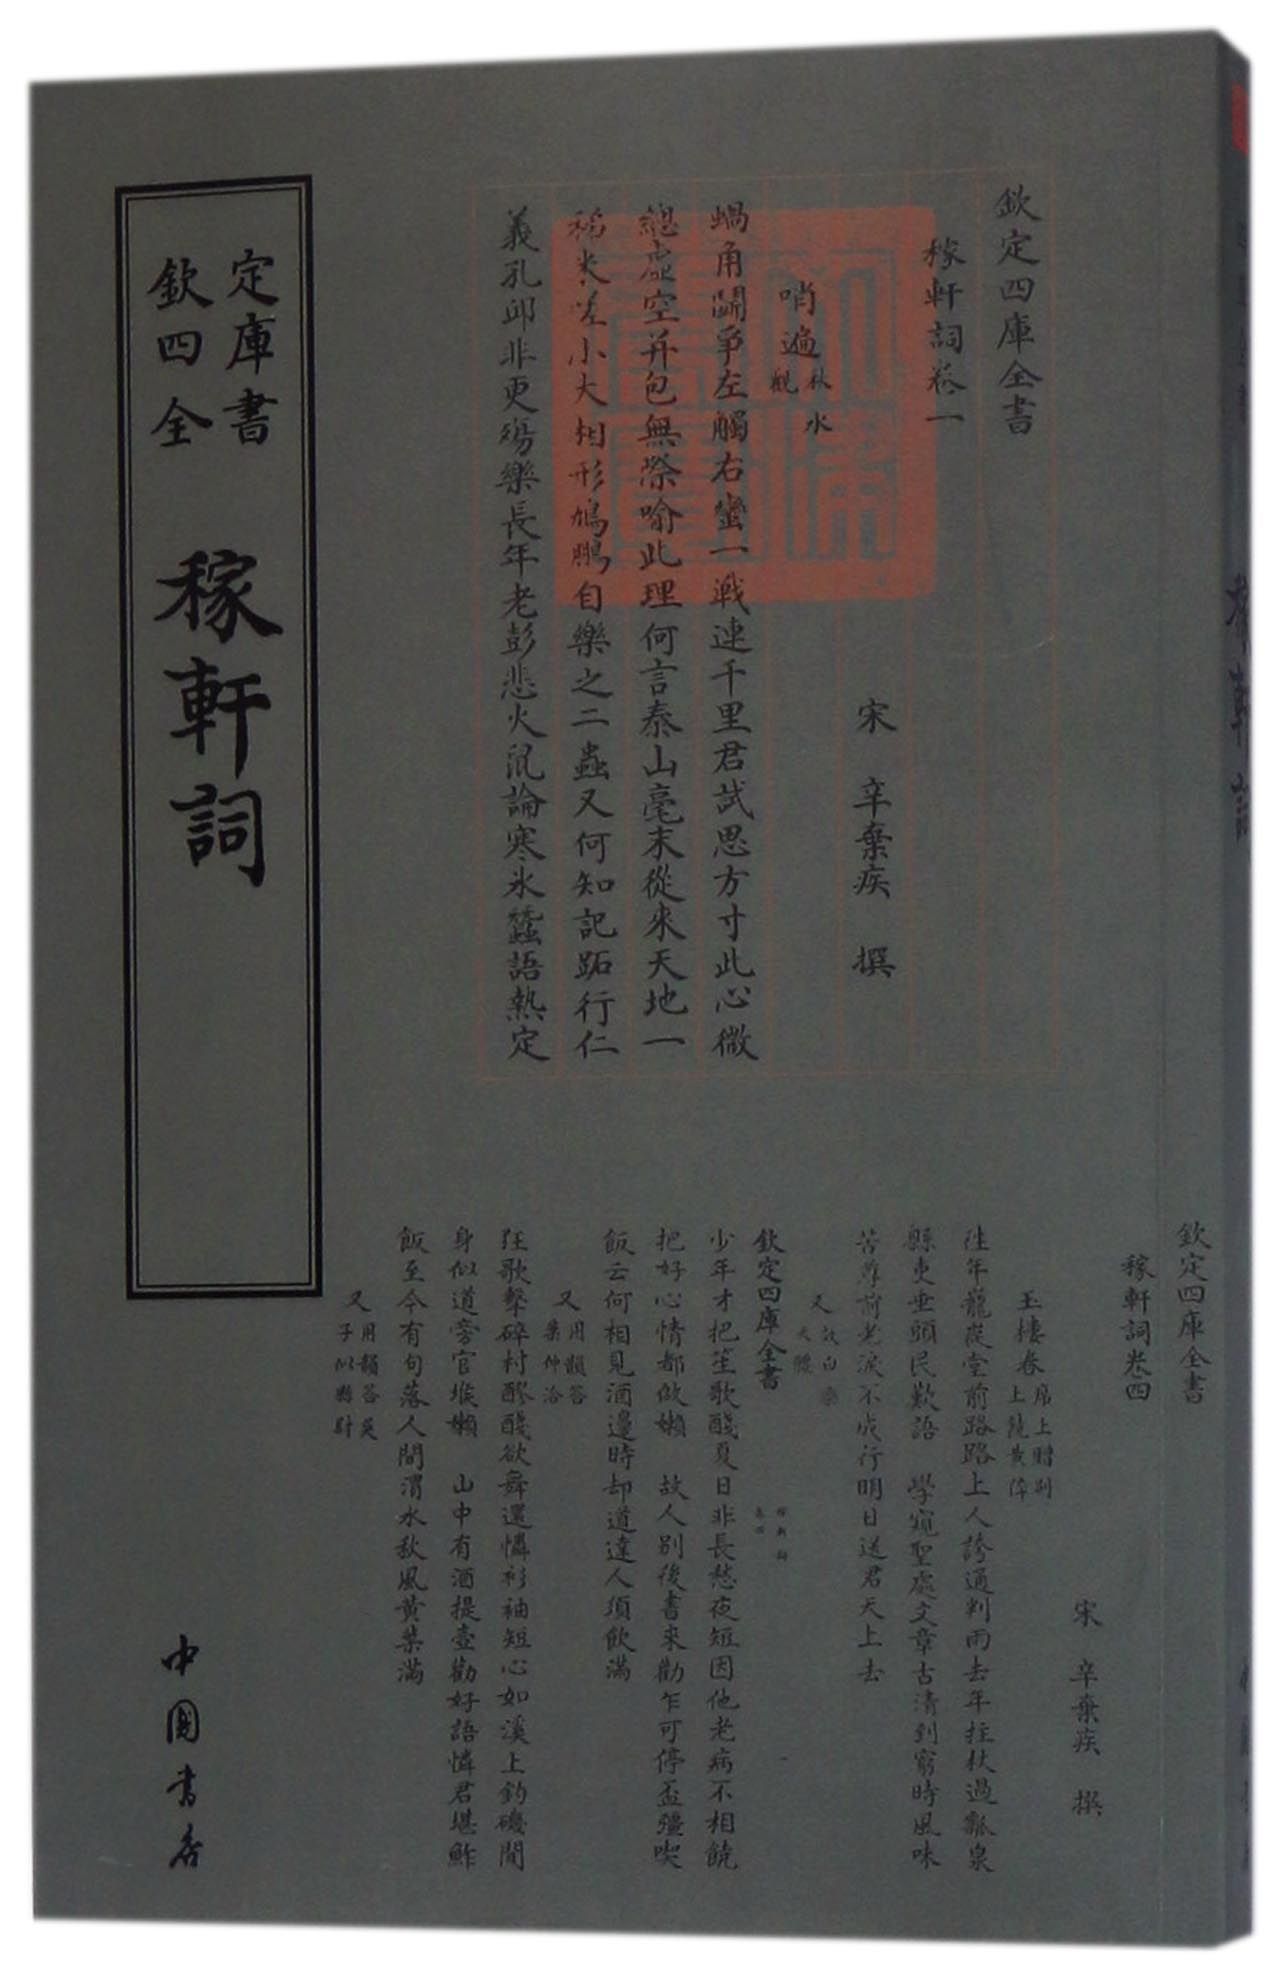 欽定四庫全書
稼軒詞
中國書店
欽定四庫全書
稼軒詞卷一
宋 辛棄疾 撰
哨遍秋水觀
蝸角鬬爭左觸右蠻一戰連千里君試思方寸此心微
總虛空并包無際喻此理何言泰山毫末從來天地一
稊米嗟小大相形鳩鵬自樂之二蟲又何知記跖行仁
義孔邱非更殤樂長年老彭悲火鼠論寒氷蠶語熱定
欽定四庫全書
稼軒詞卷四
宋 辛棄疾 撰
玉樓春席上贈別上饒黃倅
往年巃嵸堂前路路上人誇通判雨去年拄杖過瓢泉
縣吏垂頭民歎語 學窺聖處文章古清到窮時風味
苦尊前老淚不成行明日送君天上去
又效白樂天體
少年才把笙歌醆夏日非長愁夜短因他老病不相饒
欽定四庫全書
稼軒詞
卷四
把好心情都做嬾 故人別後書來勸乍可停盃彊喫
飯云何相見酒邊時却道達人須飲滿
又用韻答葉仲洽
狂歌擊碎村醪醆欲舞還憐衫袖短心如溪上釣磯閒
身似道旁官堠嬾 山中有酒提壺勸好語憐君堪鮓
飯至今有句落人間渭水秋風黃葉滿
又用韻答吳子似縣尉
稼軒詞